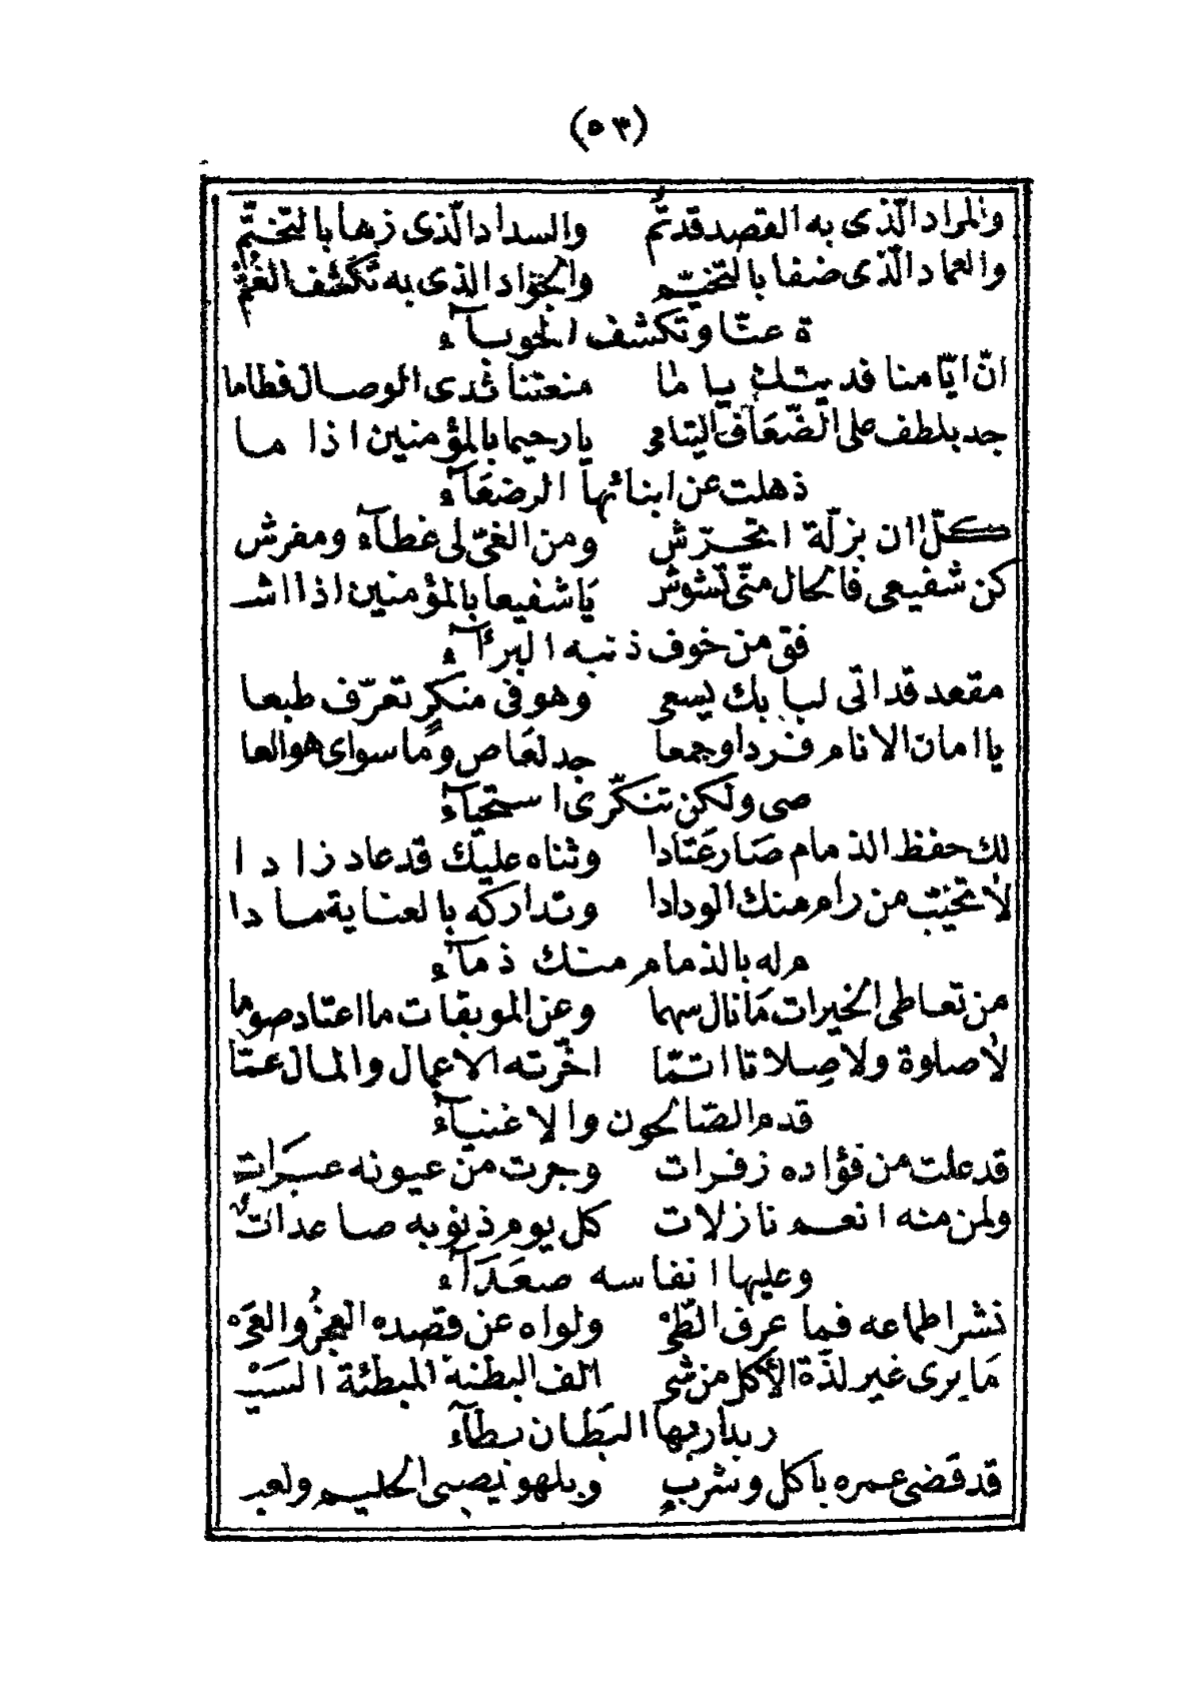 (٥٣)
والمراد الّذى به القصد قد تمّ والسداد الّذى زها بالتختّم
والعماد الّذى ضفا بالتّخيّم والجواد الذى به تكشف الغمّ
ة عنّا وتكشف الحوبآء
انّ ايّامنا فديتك يا ما منعتنا ثدى الوصال فطاما
جد بلطف على الضّعاف اليتامى يا رحيما بالمؤمنين اذا ما
ذهلت عن ابنائها الرضعآء
كلّ ان بزلّة اتحرّش ومن الغىّ لى غطآء ومفرش
كن شفيعى فالحال منّى تشوش يَا شفيعا بالمؤمنين اذا اشـ
فق من خوف ذنبه البرآء
مقعد قد اتى لبابك يسعى وهو فى منكرٍ تعرّف طبعا
يا امان الانام فردا وجمعا جد لعَاص وما سواى هو العا
صى ولكن تنكّرى استحيآء
لك حفظ الذمام صَار عَتَادا وثناه عليك قد عاد زادا
لا تخيّب من رام منك الودادا وتداركه بالعناية مادا
م له بالذمام منك ذمآء
من تعاطى الخيرات مَا نال سهما وعن الموبقات ما اعتاد صوما
لا صلوة ولا صِلاتا اتمّا اخّرته الاعمال والمال عمّا
قدم الصّالحون والاغنيآء
قد علت من فؤاده زفرات وجرت من عيونه عبَرَات
ولمن منه انعم نازلات كل يوم ذنوبه صاعدات
وعليها انفاسه صعَدَآء
نشر اطماعه فما عرف الطّىْ ولواه عن قصده العجزُ والعىْ
مَا يرى غير لذّة الأكل من شى الف البطنة المبطئة السَيْـ
ر بدار بها البطان بطآء
قد قضى عمره باكل وشربٍ وبلهو يصبى الحليم ولعب